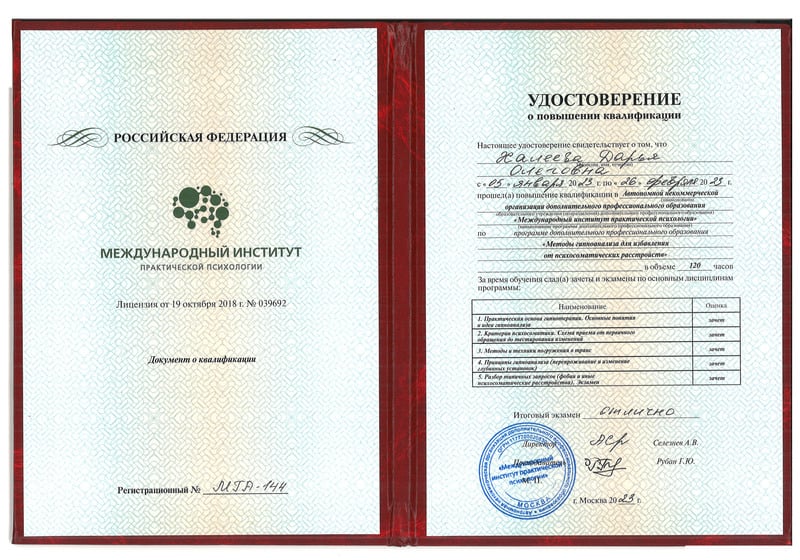 РОССИЙСКАЯ ФЕДЕРАЦИЯ
МЕЖДУНАРОДНЫЙ ИНСТИТУТ
ПРАКТИЧЕСКОЙ ПСИХОЛОГИИ
Лицензия от 19 октября 2018 г. № 039692
Документ о квалификации
Регистрационный № МГА-144
УДОСТОВЕРЕНИЕ
о повышении квалификации
Настоящее удостоверение свидетельствует о том, что
Халеева Дарья
(фамилия, имя, отчество)
Олеговна
с «05» января 2023 г. по «26» февраля 2023 г.
прошел(а) повышение квалификации в Автономной некоммерческой
(наименование)
организации дополнительного профессионального образования
образовательного учреждения (подразделения) дополнительного профессионального образования)
«Международный институт практической психологии»
(наименование программы дополнительного профессионального образования)
по программе дополнительного профессионального образования
«Методы гипноанализа для избавления
от психосоматических расстройств»
в объеме 120 часов
За время обучения сдал(а) зачеты и экзамены по основным дисциплинам
программы:
Наименование Оценка
1. Практическая основа гипнотерапии. Основные понятия
и идеи гипноанализа зачет
2. Критерии психосоматики. Схема приема от первичного
обращения до тестирования изменений зачет
3. Методы и техники погружения в транс зачет
4. Принципы гипноанализа (перепроживание и изменение
глубинных установок) зачет
5. Разбор типичных запросов (фобии и иные
психосоматические расстройства). Экзамен зачет
Итоговый экзамен отлично
Директор Селезнев А.В.
Преподаватель Рубан Г.Ю.
М.П.
«Международный
институт практической
психологии»
МОСКВА
г. Москва 2023 г.